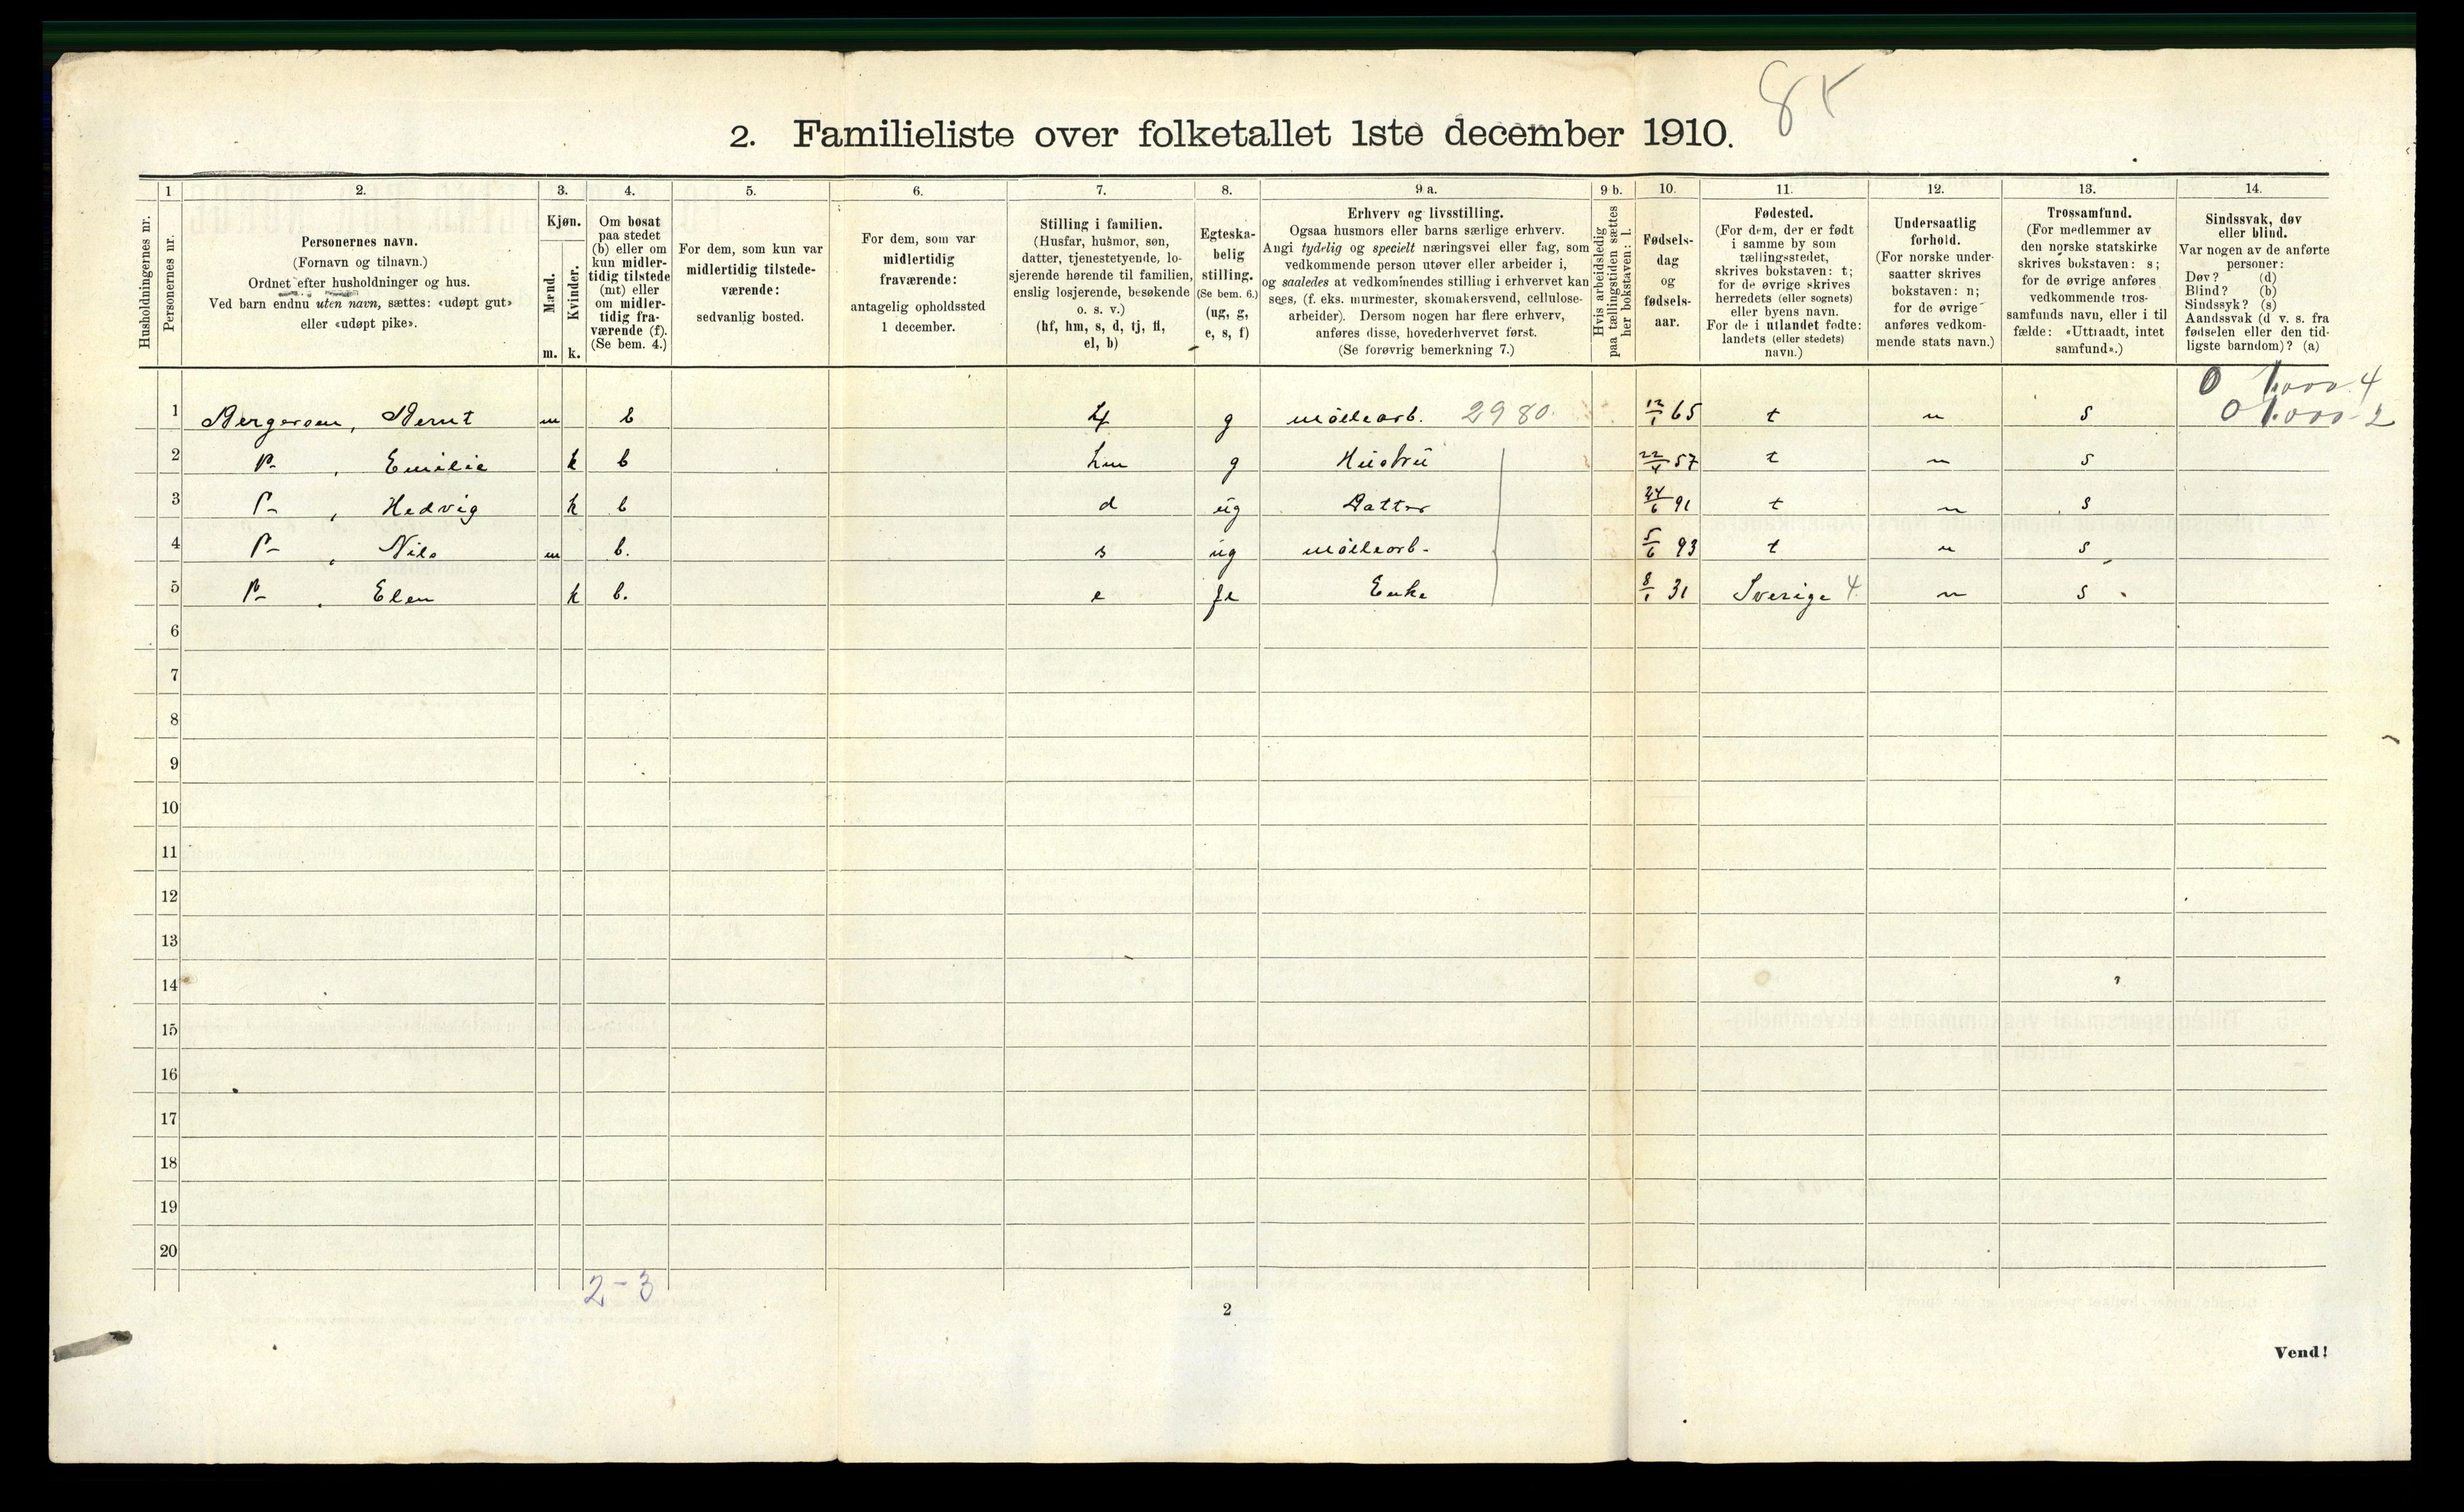 85
2. Familieliste over folketallet 1ste december 1910.
Husholdningernes nr.
1 Personernes nr.
2.
Personernes navn.
(Fornavn og tilnavn.)
Ordnet efter husholdninger og hus.
Ved barn endnu uten navn, sættes: «udøpt gut»
eller «udøpt pike».
3.
Kjøn.
Mænd. Kvinder.
m. k.
4.
Om bosat
paa stedet
(b) eller om
kun midler-
tidig tilstede
(mt) eller
om midler-
tidig fra-
værende (f).
(Se bem. 4.)
5.
For dem, som kun var
midlertidig tilstede-
værende:
sedvanlig bosted.
6.
For dem, som var
midlertidig
fraværende:
antagelig opholdssted
1 december.
7.
Stilling i familien.
(Husfar, husmor, søn,
datter, tjenestetyende, lo-
sjerende hørende til familien,
enslig losjerende, besøkende
o. s. v.)
(hf, hm, s, d, tj, fl,
el, b)
8.
Egteska-
belig
stilling.
(Se bem. 6.)
(ug, g,
e, s, f)
9 a.
Erhverv og livsstilling.
Ogsaa husmors eller barns særlige erhverv.
Angi tydelig og specielt næringsvei eller fag, som
vedkommende person utøver eller arbeider i,
og saaledes at vedkommendes stilling i erhvervet kan
sees, (f. eks. murmester, skomakersvend, cellulose-
arbeider). Dersom nogen har flere erhverv,
anføres disse, hovederhvervet først.
(Se forøvrig bemerkning 7.)
9 b.
Hvis arbeidsledig
paa tællingstiden sættes
her bokstaven: l.
10.
Fødsels-
dag
og
fødsels-
aar.
11.
Fødested.
(For dem, der er født
i samme by som
tællingsstedet,
skrives bokstaven: t;
for de øvrige skrives
herredets (eller sognets)
eller byens navn.
For de i utlandet fødte:
landets (eller stedets)
navn.)
12.
Undersaatlig
forhold.
(For norske under-
saatter skrives
bokstaven: n;
for de øvrige
anføres vedkom-
mende stats navn.)
13.
Trossamfund.
(For medlemmer av
den norske statskirke
skrives bokstaven: s;
for de øvrige anføres
vedkommende tros-
samfunds navn, eller i til
fælde: «Uttraadt, intet
samfund».)
14.
Sindssvak, døv
eller blind.
Var nogen av de anførte
personer:
Døv? (d)
Blind? (b)
Sindssyk? (s)
Aandssvak (d v. s. fra
fødselen eller den tid-
ligste barndom)? (a)
0 1.000.4
1 Bergersen, Bernt m b hf g Møllearb. 2980 12/1 65 t n s 0 1.000-2
2 " , Emilie k b hm g Hustru 22/4 57 t n s
3 " , Hedvig k b d ug Datter 24/6 91 t n s
4 " , Nils m b. s ug Møllearb. 5/6 93 t n s
5 " , Elen k b. e Enke 8/1 31 Sverige 4 n s
6
7
8
9
10
11
12
13
14
15
16
17
18
19
20
2-3
2
Vend!